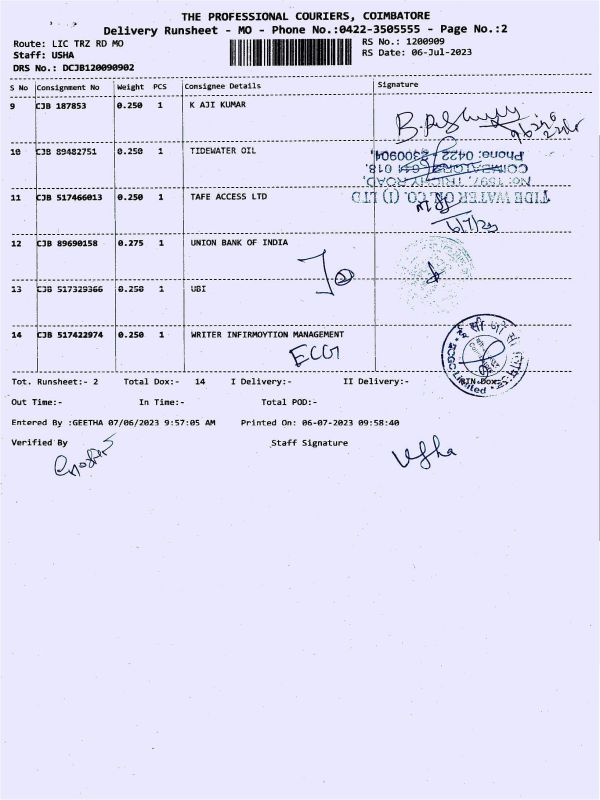 THE PROFESSIONAL COURIERS, COIMBATORE
Delivery Runsheet - MO - Phone No.:0422-3505555 - Page No.:2
Route: LIC TRZ RD MO RS No.: 1200909
Staff: USHA RS Date: 06-Jul-2023
DRS No.: DCJB120090902
S No Consignment No Weight PCS Consignee Details Signature
9 CJB 187853 0.250 1 K AJI KUMAR
10 CJB 89482751 0.250 1 TIDEWATER OIL
Phone: 0422 - 2300904,
COIMBATORE - 641 018.
No: 1597, TRICHY ROAD,
11 CJB 517466013 0.250 1 TAFE ACCESS LTD TIDE WATER OIL CO. (I) LTD
6/7/23
12 CJB 89690158 0.275 1 UNION BANK OF INDIA
13 CJB 517329366 0.250 1 UBI
14 CJB 517422974 0.250 1 WRITER INFIRMOYTION MANAGEMENT
ECG
ECGC Limited
Tot. Runsheet:- 2 Total Dox:- 14 I Delivery:- II Delivery:- NIN-Dox:-
Out Time:- In Time:- Total POD:-
Entered By :GEETHA 07/06/2023 9:57:05 AM Printed On: 06-07-2023 09:58:40
Verified By Staff Signature
Usha